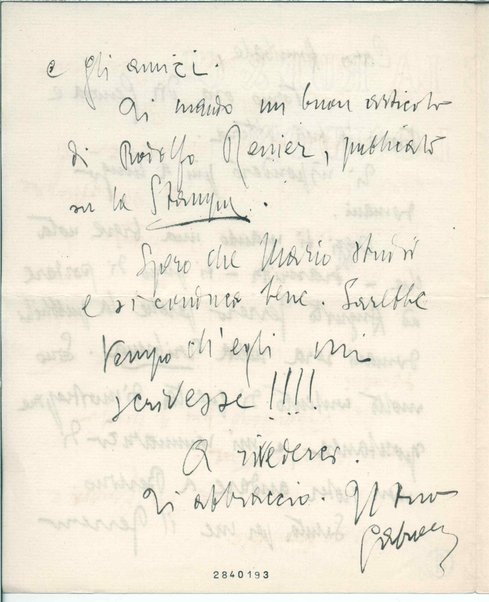 e gli amici.
Ti mando un buon articolo
di Rodolfo Renier, pubblicato
su la Stampa.
Spero che Mario studi
e si conduca bene. Sarebbe
tempo ch'egli mi
scrivesse!!!!
A rivederci.
Ti abbraccio. Il tuo
Gabriel
2840193